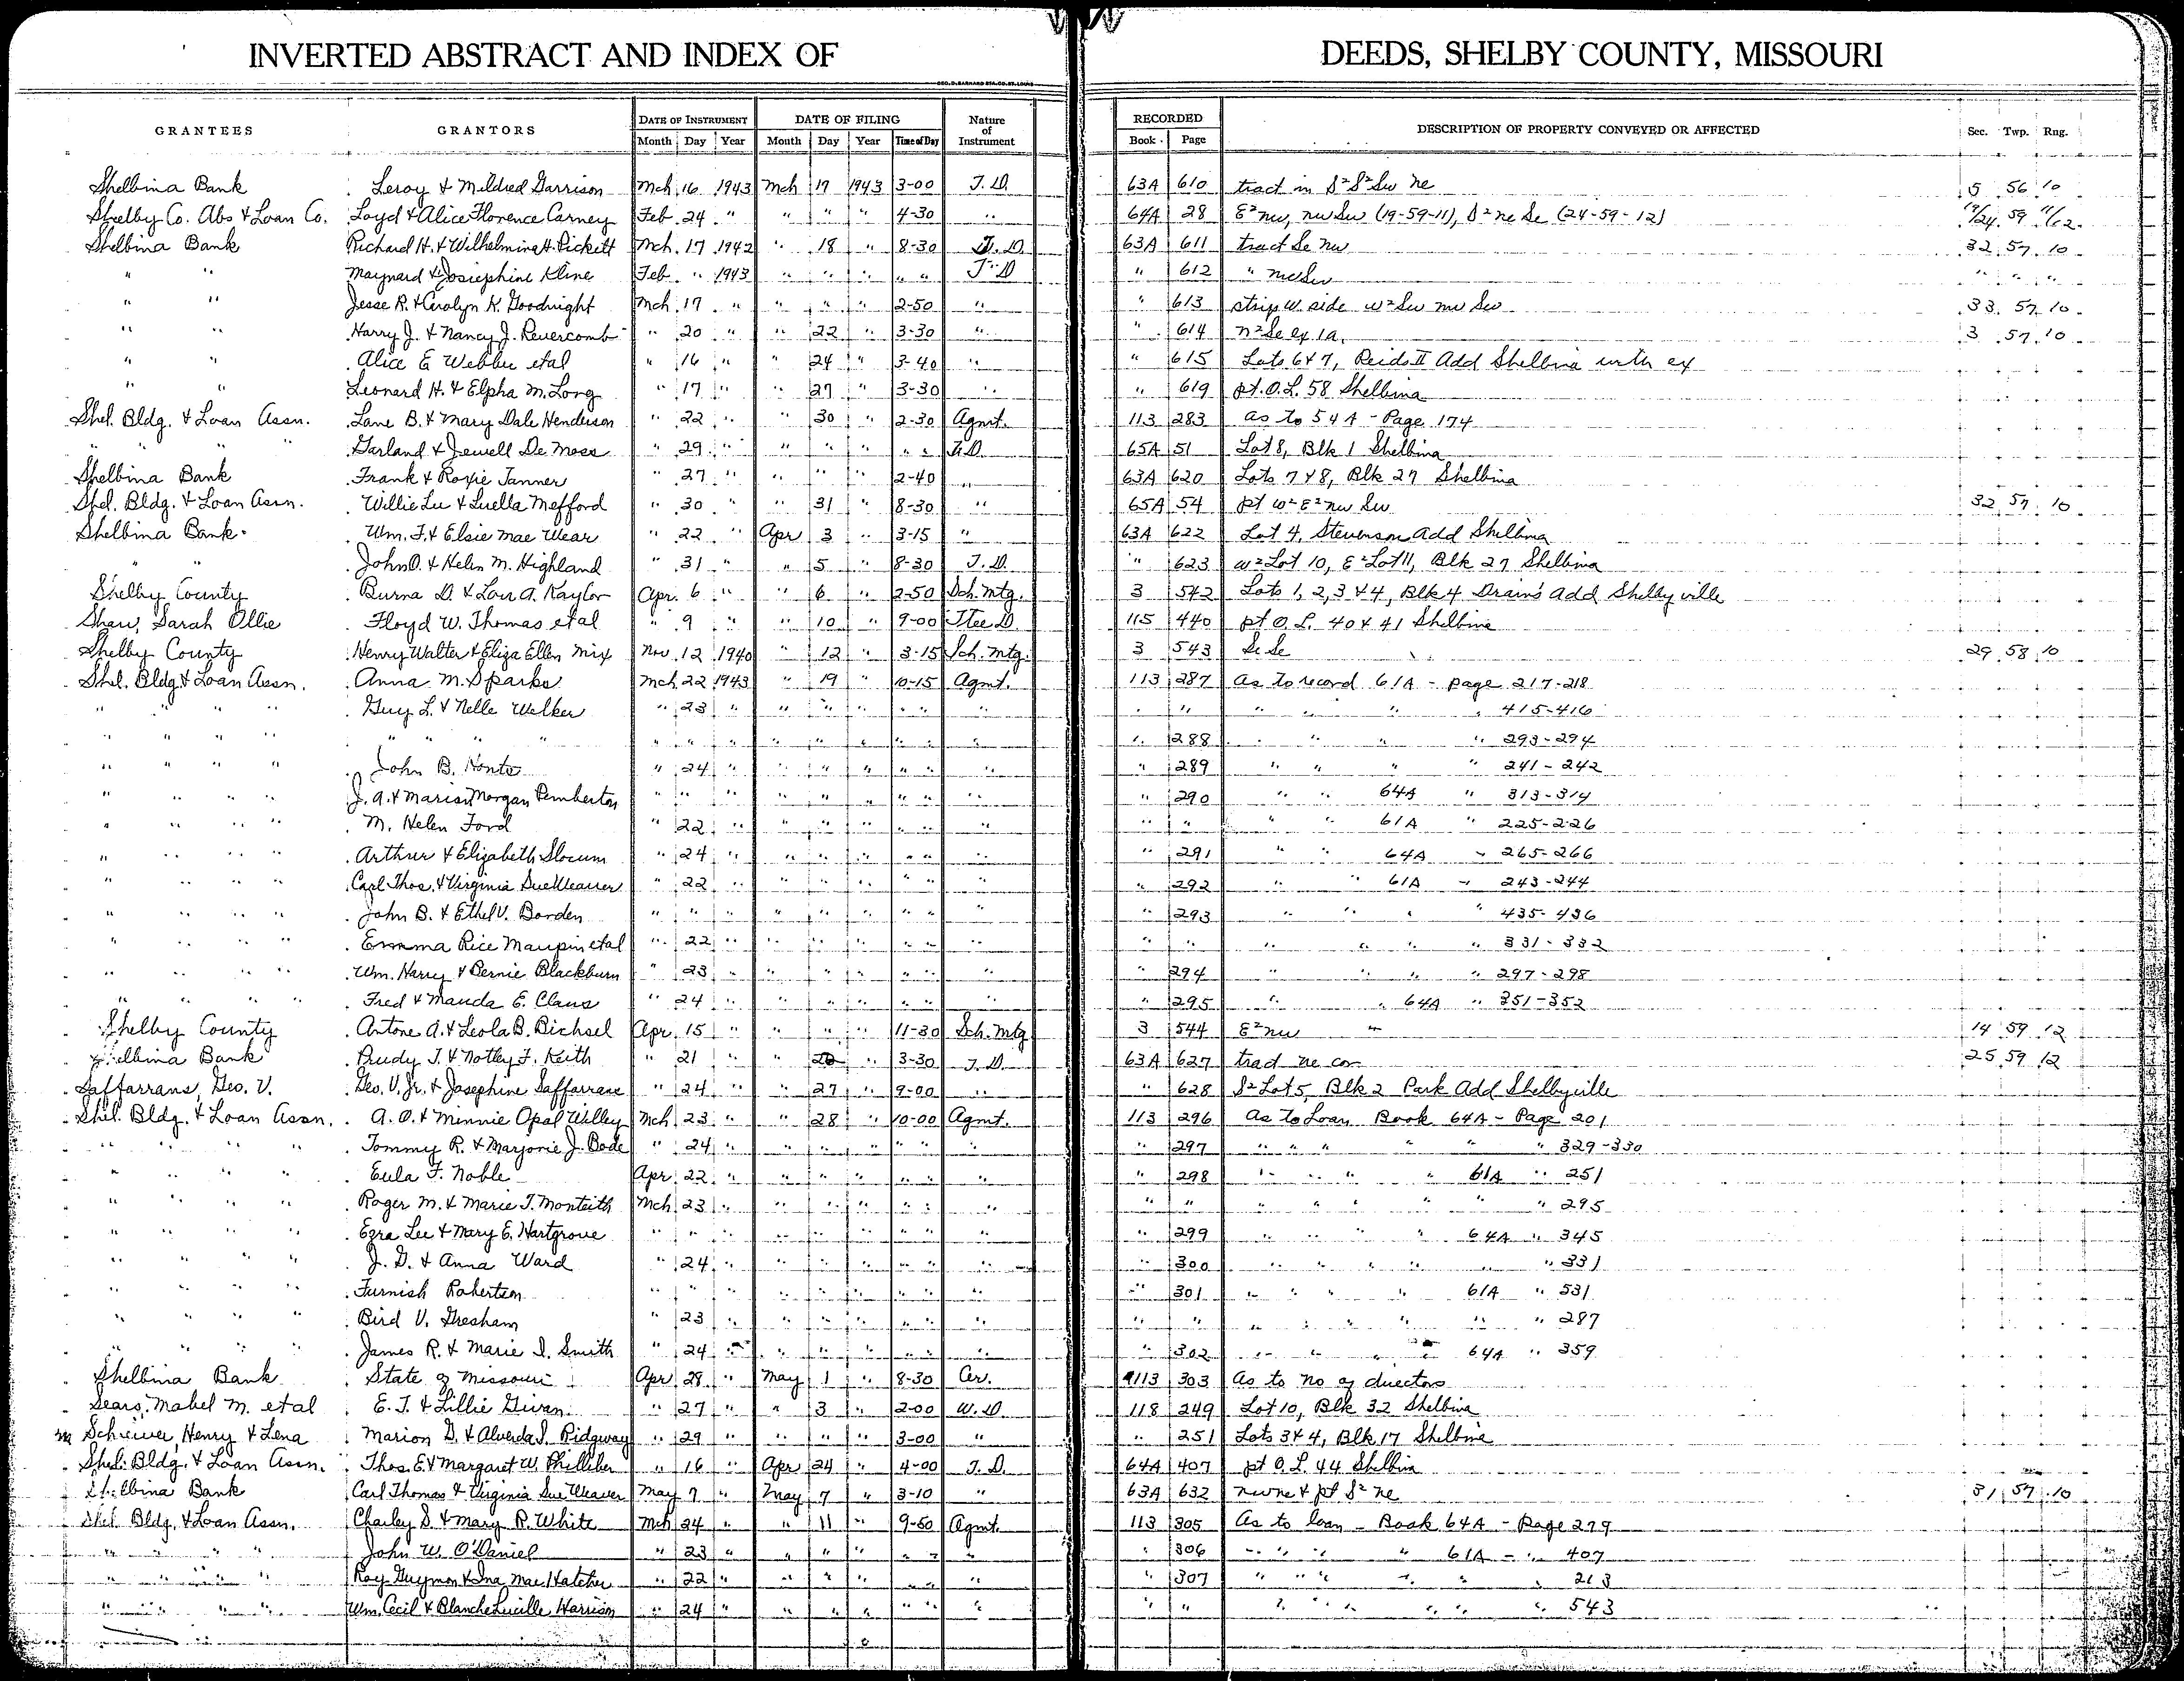 INVERTED ABSTRACT AND INDEX OF DEEDS, SHELBY COUNTY, MISSOURI
GRANTEES GRANTORS DATE OF INSTRUMENT DATE OF FILING Nature of Instrument RECORDED DESCRIPTION OF PROPERTY CONVEYED OR AFFECTED Sec. Twp. Rng.
Month Day Year Month Day Year Time of Day Book Page
Shelbina Bank Leroy & Mildred Garrison Mch 16 1943 Mch 17 1943 3-00 T.D. 63A 610 tract in S² S² Sw ne 5 56 10
Shelby Co. Abs & Loan Co. Loyd & Alice Florence Carney Feb. 24 " " " " 4-30 " 64A 28 E² nw, nw Sw (19-59-11), S² ne Se (24-59-12) 19/24 59 11/12
Shelbina Bank Richard H. & Wilhelmina H. Pickett Mch. 17 1942 " 18 " 8-30 T.D. 63A 611 tract Se nw 32 57 10
" " Maynard & Josiephine Kline Feb " 1943 " " " " " T.D " 612 " nw Sw " " "
" " Jesse R. & Carolyn K. Goodnight Mch 17 " " " " 2-50 " " 613 strip W. side W² Sw nw Sw 33 57 10
" " Harry J. & Nancy J. Revercomb " 20 " " 22 " 3-30 " " 614 N² Se ex 1a. 3 57 10
" " Alice E Webber etal " 16 " " 24 " 3-40 " " 615 Lots 6 & 7, Reids II Add Shelbina with ex
" " Leonard H. & Elpha M. Long " 17 " " 27 " 3-30 " " 619 pt. O.L. 58 Shelbina
Shel. Bldg. & Loan Assn. Lane B. & Mary Dale Henderson " 22 " " 30 " 2-30 Agmt. 113 283 as to 54A - Page 174
" " " " Garland & Jewell De Moss " 29 " " " " " " T.D. 65A 51 Lot 8, Blk 1 Shelbina
Shelbina Bank Frank & Roxie Tanner " 27 " " " 2-40 " 63A 620 Lots 7 & 8, Blk 27 Shelbina
Shel. Bldg. & Loan Assn. Willie Lu & Luella Mefford " 30 " " 31 " 8-30 " 65A 54 pt W² E² nw Sw 32 57 10
Shelbina Bank Wm. F. & Elsie Mae Wear " 22 " Apr 3 " 3-15 " 63A 622 Lot 4, Stevenson Add Shelbina
" " John O. & Helen M. Highland " 31 " " 5 " 8-30 T.D. " 623 W² Lot 10, E² Lot 11, Blk 27 Shelbina
Shelby County Burna D. & Lou A. Kaylor Apr. 6 " " 6 " 2-50 Sch. Mtg. 3 542 Lots 1, 2, 3 & 4, Blk 4 Drain's Add Shelbyville
Shaw, Sarah Ollie Floyd W. Thomas etal " 9 " " 10 " 9-00 Ttee D. 115 440 pt O.L. 40 & 41 Shelbina
Shelby County Henry Walter & Eliza Ellen Mix Nov 12 1940 " 12 " 3-15 Sch. Mtg. 3 543 Se Se 29 58 10
Shel. Bldg & Loan Assn. Anna M. Sparks Mch 22 1943 " 19 " 10-15 Agmt. 113 287 As to record 61A - page 217-218
" " " " Guy L. & Nelle Welker " 23 " " " " " " " " " " " " " 415-416
" " " " " " " " " " " " " " " " " " 288 " " " " 293-294
" " " " John B. Honts " 24 " " " " " " " " 289 " " " " 241-242
" " " " J. A. & Marion Morgan Pemberton " " " " " " " " " " 290 " " 64A " 313-314
" " " " M. Helen Ford " 22 " " " " " " " " " " " 61A " 225-226
" " " " Arthur & Elizabeth Slocum " 24 " " " " " " " " 291 " " 64A " 265-266
" " " " Carl Thos. & Virginia Sue Weaver " 22 " " " " " " " " 292 " 61A " 243-244
" " " " John B. & Ethel V. Borden " " " " " " " " " " 293 " " " " 435-436
" " " " Emma Rice Maupin etal " 22 " " " " " " " " " " " " " 331-332
" " " " Wm. Harry & Bernie Blackburn " 23 " " " " " " " " 294 " " " " 297-298
" " " " Fred & Mauda E. Claus " 24 " " " " " " " " 295 " " 64A " 351-352
Shelby County Antone A. & Leola B. Bichsel Apr. 15 " " " " 11-30 Sch. Mtg 3 544 E² nw 14 59 12
Shelbina Bank Rudy T. & Notley F. Keith " 21 " " " 3-30 T.D. 63A 627 trad ne cor 25 59 12
Saffarrans, Geo. V. Geo. V. Jr. & Josephine Saffarrans " 24 " " 27 " 9-00 " " 628 S² Lot 5, Blk 2 Park Add Shelbyville
Shel. Bldg. & Loan Assn. A. O. & Minnie Opal Willey Mch 23 " " 28 " 10-00 Agmt. 113 296 As to Loan Book 64A - Page 201
" " " " Tommy R. & Marjorie J. Bode " 24 " " " " " " " " 297 " " " " " " 329-330
" " " " Eula F. Noble Apr 22 " " " " " " " " 298 " " " " 61A " 251
" " " " Roger M. & Marie T. Monteith Mch 23 " " " " " " " " " " " " " " " 295
" " " " Ezra Lee & Mary E. Hartgrove " " " " " " " " " " 299 " " " " 64A " 345
" " " " J. D. & Anna Ward " 24 " " " " " " " " 300 " " " " " " 331
" " " " Furnish Robertson " " " " " " " " " " 301 " " " " 61A " 531
" " " " Bird V. Gresham " 23 " " " " " " " " " " " " " " " 287
" " " " James R. & Marie I. Smith " 24 " " " " " " " " 302 " " " " 64A " 359
Shelbina Bank State of Missouri Apr 28 " May 1 " 8-30 Cer. 113 303 As to no of directors
Sears, Mabel M. etal E. T. & Lillie Givan " 27 " " 3 " 2-00 W.D. 118 249 Lot 10, Blk 32 Shelbina
Henry & Lena Marion D. & Alverda I. Ridgway " 29 " " " " 3-00 " " 251 Lots 3 & 4, Blk 17 Shelbina
Shel. Bldg. & Loan Assn. Thos. E. & Margaret W. Philliber " 16 " Apr 24 " 4-00 T.D. 64A 407 pt O.L. 44 Shelbina
Shelbina Bank Carl Thomas & Virginia Sue Weaver May 7 " May 7 " 3-10 " 63A 632 nw ne & pt S² ne 31 57 10
Shel. Bldg. & Loan Assn. Charley S. & Mary R. White Mch 24 " " 11 " 9-50 Agmt. 113 305 As to loan - Book 64A - Page 279
" " " " John W. O'Daniel " 23 " " " " " " " " 306 " " " " 61A - " 407
" " " " Roy Guymon & Ina Mae Hatcher " 22 " " " " " " " " 307 " " " " " " 213
" " " " Wm. Cecil & Blanche Lucille Harrison " 24 " " " " " " " " " " " " " " " " 543